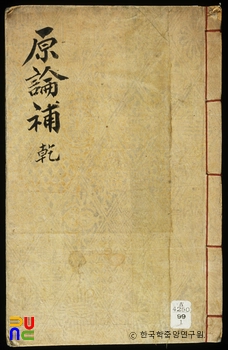 原論補
乾
4250
99
ⓒ 한국학중앙연구원